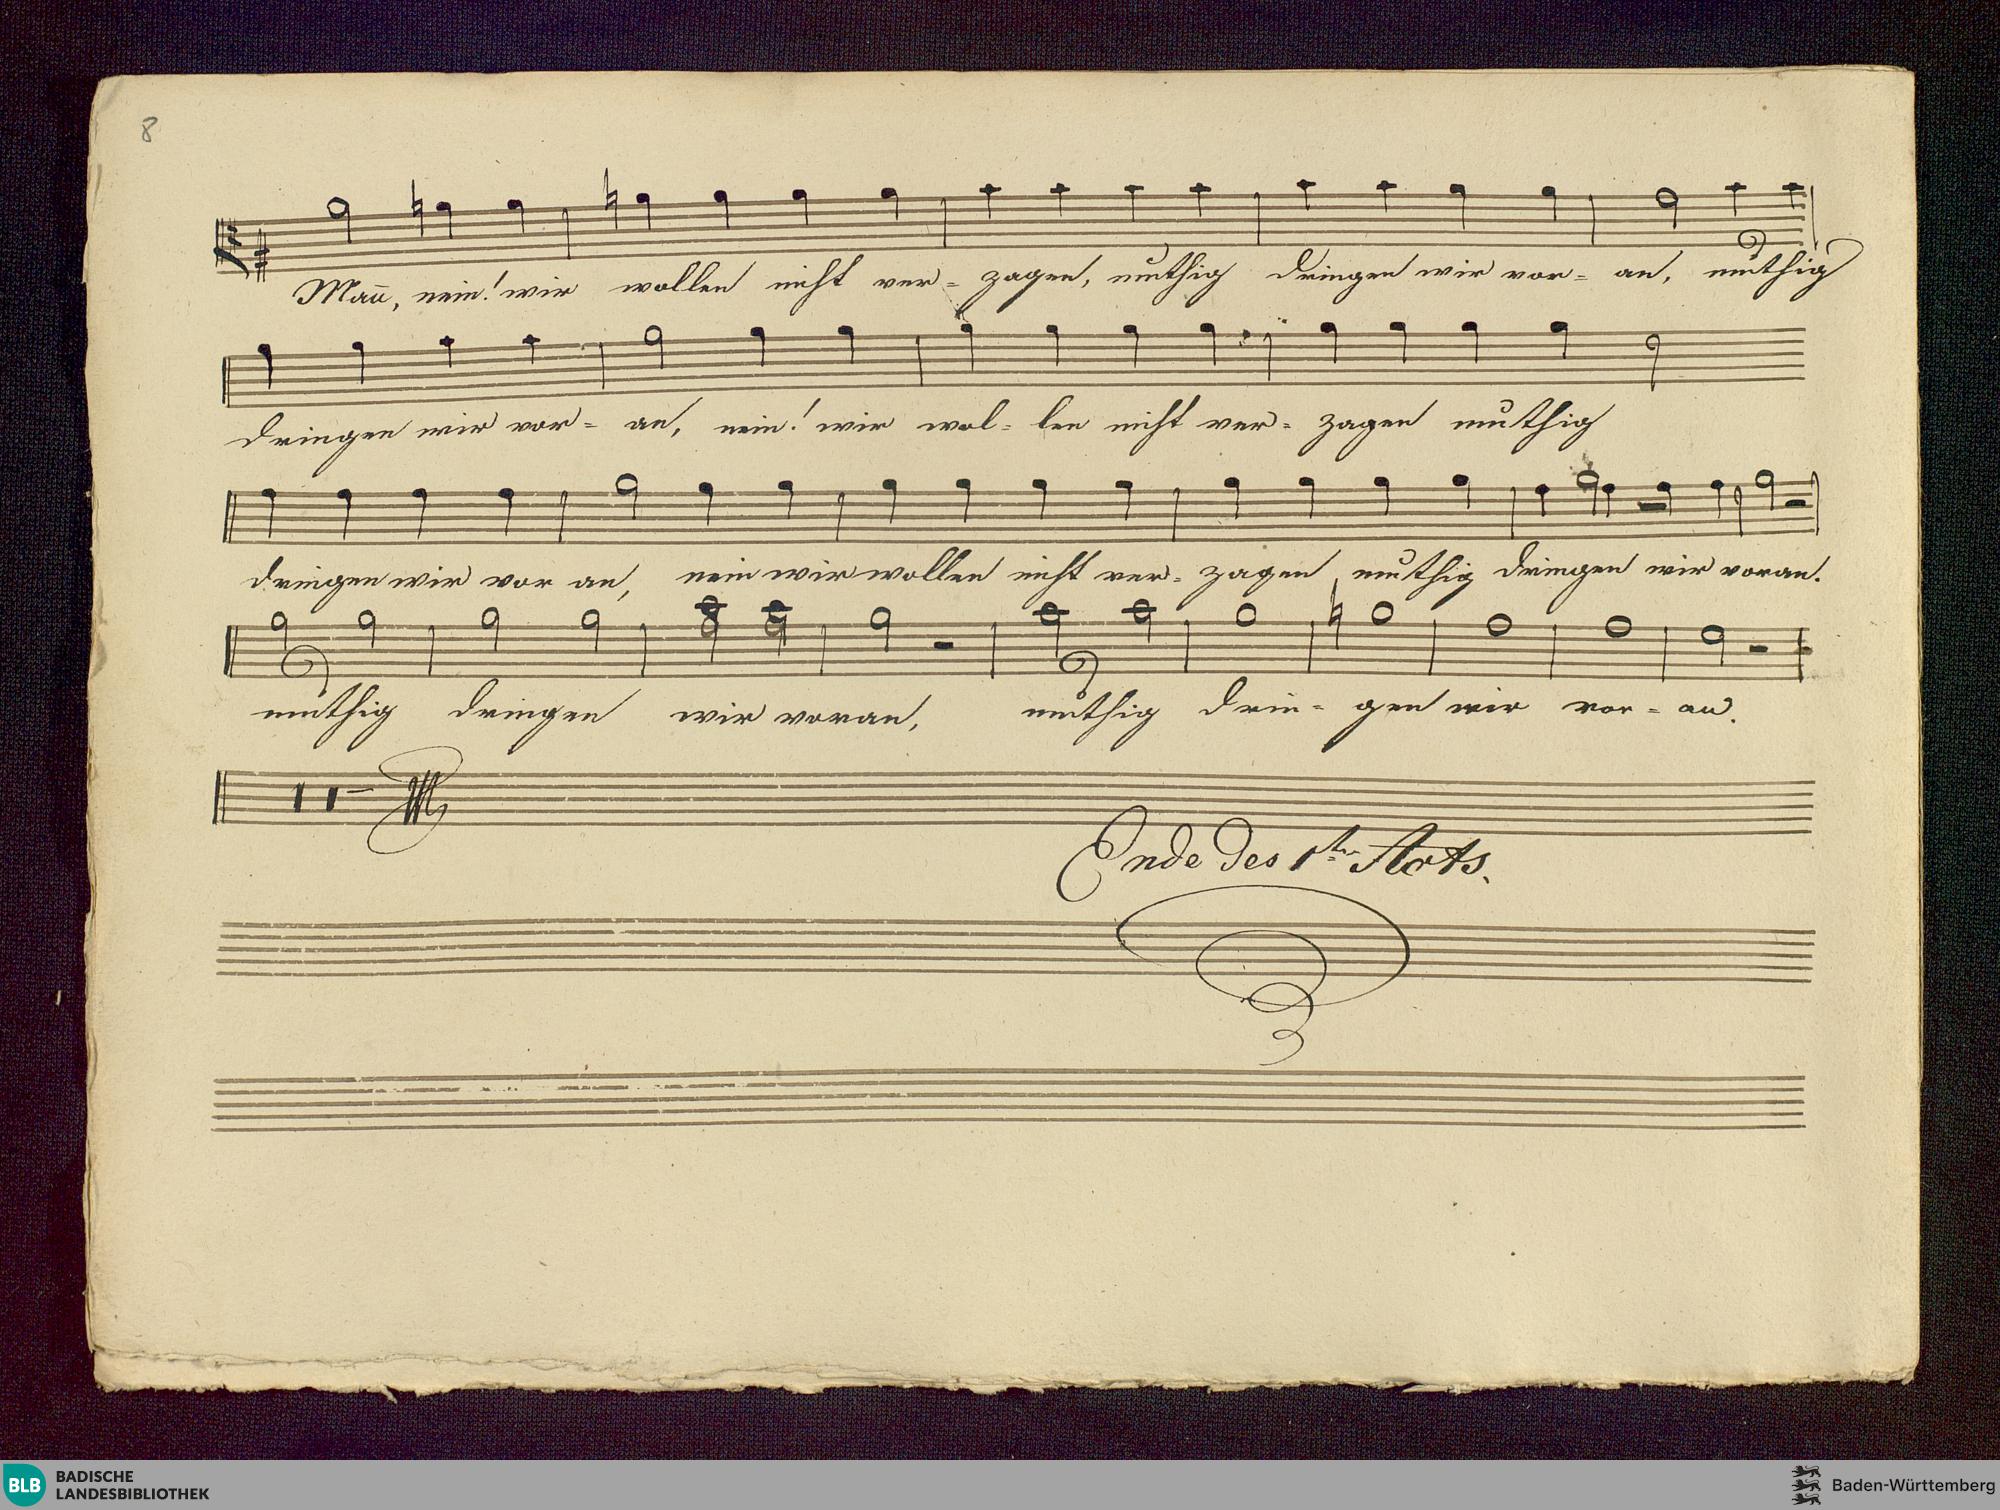 8
Mañ, nein! wir wollen nicht ver- zagen, muthig dringen wir vor- an, muthig
dringen wir vor- an, nein! wir wol- len nicht ver- zagen muthig
dringen wir vor an, nein wir wollen nicht ver- zagen muthig dringen wir voran.
muthig dringen wir voran, muthig drin- gen wir vor- an.
Ende des 1ten Acts.
BLB BADISCHE
LANDESBIBLIOTHEK
Baden-Württemberg